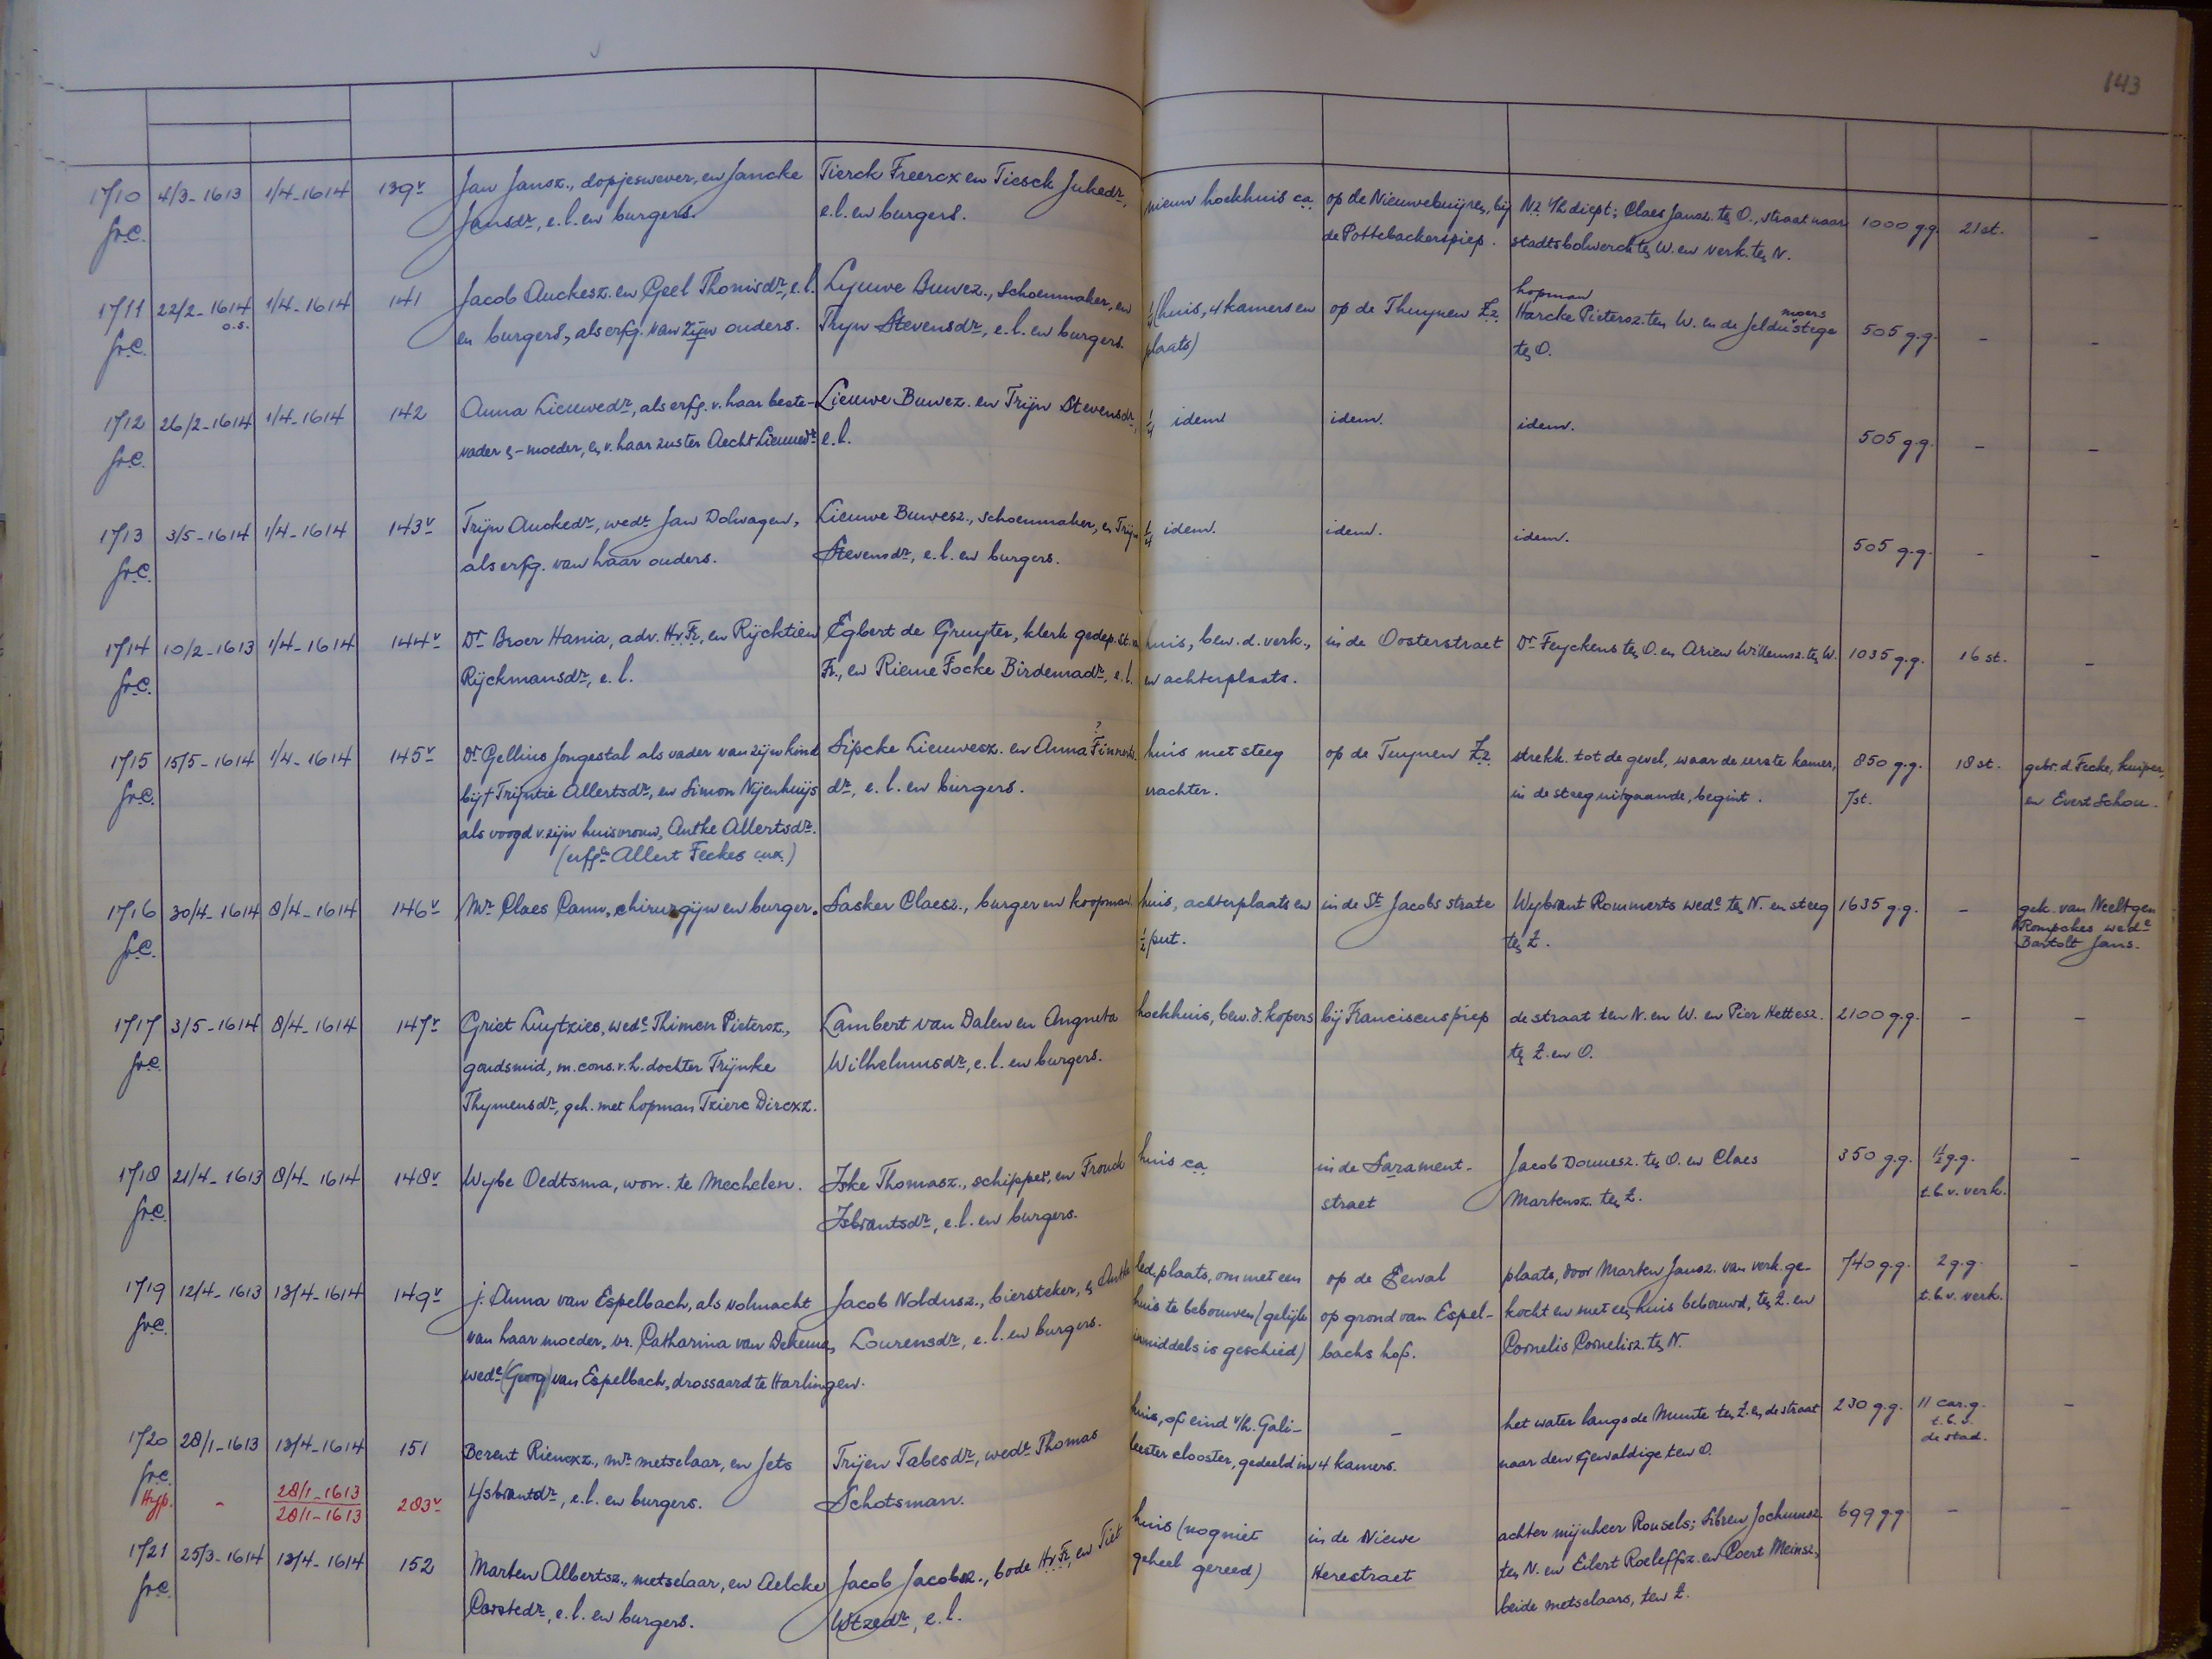 143
1710 4/3-1613 1/4-1614 139v Jan Jansz., dopjeswever, en Jancke Tierck Freercx en Tiesck Jukedr, nieuw hoekhuis ca op de Nieuwebuijren, bij Nz 't h. diept; Claes Jansz. ten O., straat naar 1000 g.g. 21 st. -
fr.C. Jansdr, e.l. en burgers. e.l. en burgers. de Pottebackerspiep. stadtsbolwerck ten W. en verk. ten N.
hopman
1711 22/2-1614 1/4-1614 141 Jacob Auckesz. en Geel Thonisdr, e.l. Lyuwe Buwez., schoenmaker, en (huis, 4 kamers en op de Thuynen Zz. Harcke Pietersz. ten W. en de Jeldumoersstege 505 g.g. - -
o.s.
fr.C. en burgers, als erfg. van zijn ouders. Tryn Stevensdr, e.l. en burgers. plaats) ten O.
1712 26/2-1614 1/4-1614 142 Anna Lieuwedr, als erfg. v. haar beste- Lieuwe Buwez. en Trijn Stevensdr, 1/4 idem idem. idem. 505 g.g. - -
fr.C. vader en -moeder, en v. haar zuster Aecht Lieuwedr e.l.
1713 3/5-1614 1/4-1614 143v Trijn Auckedr, wede Jan Dolwagen, Lieuwe Buwesz., schoenmaker, en Trijn 1/4 idem. idem. idem. 505 g.g. - -
fr.C. als erfg. van haar ouders. Stevensdr, e.l. en burgers.
1714 10/2-1613 1/4-1614 144v Dr Broer Hania, adv. Hv Fr, en Rijcktien Egbert de Gruyter, klerk gedep. st. v. huis, bew. d. verk., in de Oosterstraet Dr Feyckens ten O. en Arien Willemsz. ten W. 1035 g.g. 16 st. -
fr.C. Rijckmansdr, e.l. Fr., en Rieme Focke Birdemadr, e.l. en achterplaats.
?
1715 15/5-1614 1/4-1614 145v Dr Gellius Jongestal als vader van zijn kind Sipcke Lieuwesz. en Anna huis met steeg op de Tuynen Zz. strekk. tot de gevel, waar de eerste kamer, 850 g.g. 18 st. gebr. d. Fecke, kuiper,
fr.C. bij † Trijntie Allertsdr, en Simon Nijenhuijs dr, e.l. en burgers. erachter. in de steeg uitgaande, begint. 7 st. en Evert Schou.
als voogd v. zijn huisvrouw, Antke Allertsdr.
(erfgn Allert Feckes cux.)
1716 30/4-1614 8/4-1614 146v Mr Claes Cann, chirurgijn en burger. Sasker Claesz., burger en koopman. huis, achterplaats en in de St Jacobs strate Weybrant Rommerts wede ten N. en steeg 1635 g.g. - gek. van Neeltgen
fr.C. 1/2 put. ten Z. Rompckes wede
Bartolt Jans.
1717 3/5-1614 8/4-1614 147v Griet Luytzies, wede Thimen Pietersz., Lambert van Dalen en Angnita hoekhuis, bew. d. kopers bij Franciscuspiep de straat ten N. en W. en Pier Hettesz. 2100 g.g. - -
fr.C. goudsmid, m. cons. v. h. dochter Trijnke Wilhelmusdr, e.l. en burgers. ten Z. en O.
Thymensdr, geh. met hopman Tzierc Dircxz.
1718 21/4-1613 8/4-1614 148v Wybe Oedtsma, won. te Mechelen. Jske Thomasz., schipper, en Frouck huis ca in de Sarament- Jacob Douuesz. ten O. en Claes 350 g.g. 1 1/2 g.g. -
fr.C. Jsbrantsdr, e.l. en burgers. straet Martensz. ten Z. t.b.v. verk.
1719 12/4-1613 13/4-1614 149v j. Anna van Espelbach, als volmacht Jacob Noldusz., biersteker, en led. plaats, om met een op de Eewal plaats, door Marten Jansz. van verk. ge- 740 g.g. 2 g.g. -
fr.C. van haar moeder, vr. Catharina van Dekema, Lourensdr, e.l. en burgers. huis te bebouwen (gelijk op grond van Espel- kocht en met een huis bebouwd, ten Z. en t.b.v. verk.
wede (Georg) van Espelbach, drossaard te Harlingen. inmiddels is geschied) bachs hof. Cornelis Cornelisz. ten N.
1720 28/1-1613 13/4-1614 151 Berent Riencxz., mr metselaar, en Jets Trijen Tabesdr, wede Thomas huis, op eind v/h. Gali- - het water langs de Munte ten Z. en de straat 230 g.g. 11 car.g. -
fr.C. t.b.v.
Hyp. - 28/1-1613 283v Ysbrantsdr, e.l. en burgers. Schotsman. leester clooster, gedeeld in 4 kamers. naar den Gewaldige ten O. de stad.
28/1-1613
1721 25/3-1614 13/4-1614 152 Marten Albertsz., metselaar, en Aelcke Jacob Jacobsz., bode Hv Fr, en Tiet huis (nog niet in de Niewe achter mijnheer Rousels; Sibren Jochumsz. 699 g.g. - -
fr.C. Corstedr, e.l. en burgers. Wtzedr, e.l. geheel gereed) Herestraet ten N. en Eilert Roeleffsz. en Coert Meinsz.,
beide metselaars, ten Z.